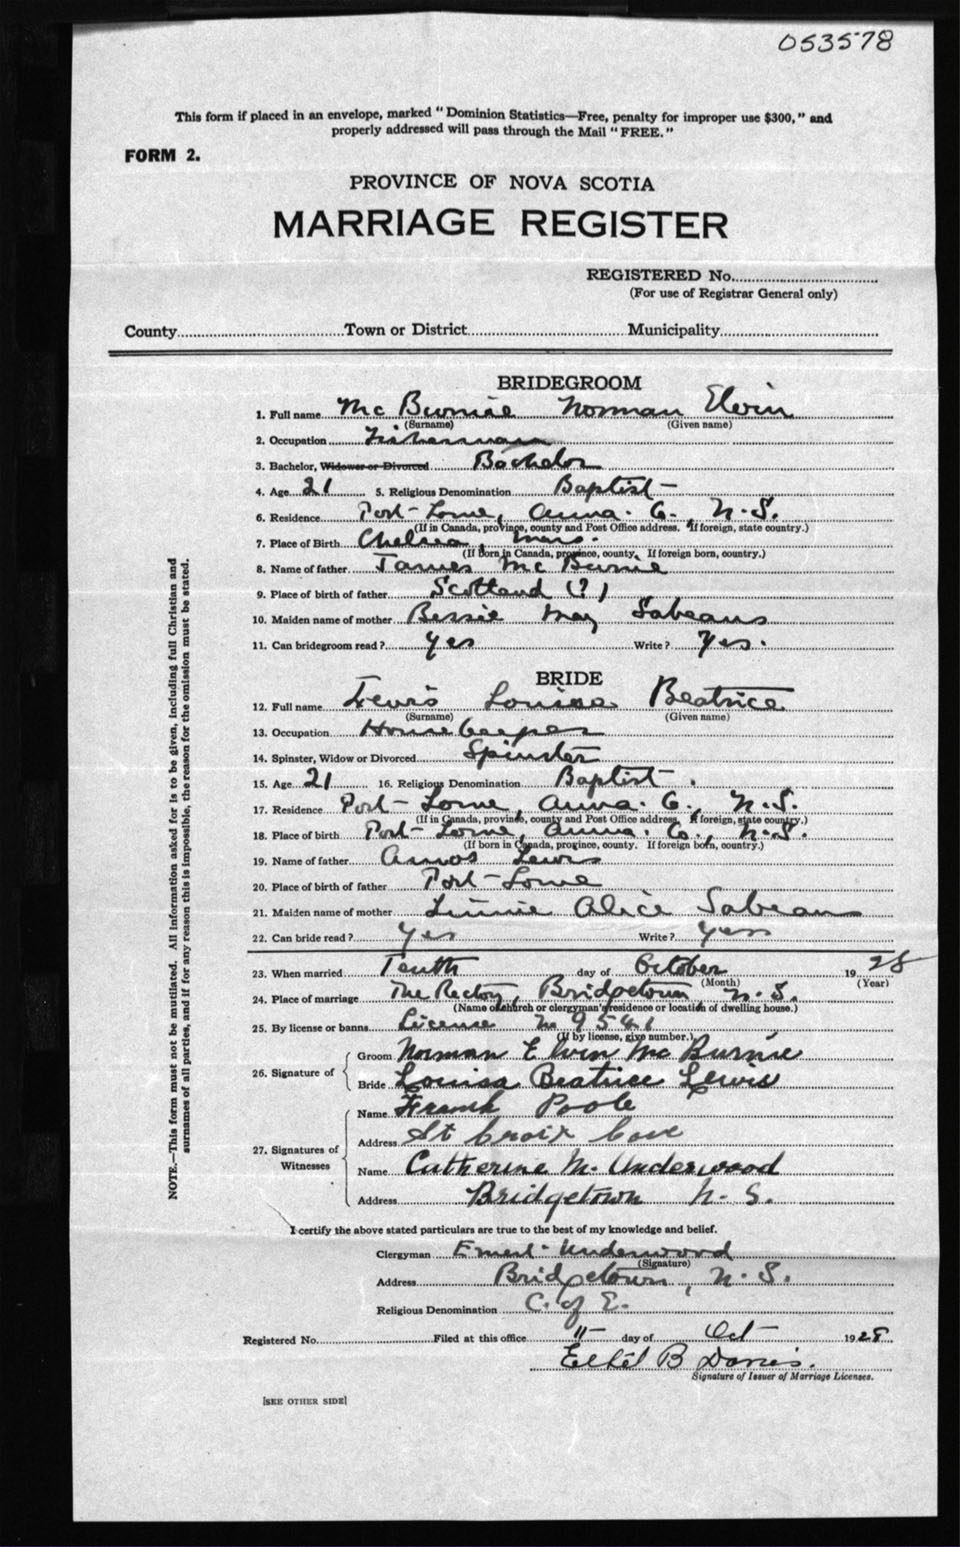 053578
This form if placed in an envelope, marked "Dominion Statistics—Free, penalty for improper use $300," and
properly addressed will pass through the Mail "FREE."
FORM 2.
PROVINCE OF NOVA SCOTIA
MARRIAGE REGISTER
REGISTERED No.
(For use of Registrar General only)
County Town or District Municipality
BRIDEGROOM
1. Full name Mc Burnie Norman Elvin
(Surname) (Given name)
2. Occupation Fisherman
3. Bachelor, Widower or Divorced Bachelor
4. Age 21 5. Religious Denomination Baptist
6. Residence Port-Lorne, Anna. Co., N.S.
(If in Canada, province, county and Post Office address. If foreign, state country.)
7. Place of Birth Chelsea, Mass.
(If Born in Canada, province, county. If foreign born, country.)
8. Name of father James Mc Burnie
9. Place of birth of father Scotland (?)
10. Maiden name of mother Bessie May Sabeans
11. Can bridegroom read? Yes Write? Yes.
BRIDE
12. Full name Lewis Louisa Beatrice
(Surname) (Given name)
13. Occupation Housekeeper
14. Spinster, Widow or Divorced Spinster
15. Age 21 16. Religious Denomination Baptist.
17. Residence Port-Lorne, Anna. Co., N.S.
(If in Canada, province, county and Post Office address. If foreign, state country.)
18. Place of birth Port-Lorne, Anna. Co., N.S.
(If born in Canada, province, county. If foreign born, country.)
19. Name of father Amos Lewis
20. Place of birth of father Port-Lorne
21. Maiden name of mother Linnie Alice Sabean
22. Can bride read? Yes Write? Yes
23. When married Tenth day of October 1928
(Month) (Year)
24. Place of marriage The Rectory, Bridgetown N.S.
(Name of church or clergyman's residence or location of dwelling house.)
25. By license or banns License No 9541
(If by license, give number.)
26. Signature of
Groom Norman Elvin Mc Burnie
Bride Louisa Beatrice Lewis
27. Signatures of Witnesses
Name Frank Poole
Address St Croix Cove
Name Catherine M. Underwood
Address Bridgetown N. S.
I certify the above stated particulars are true to the best of my knowledge and belief.
Clergyman Ernest Underwood
(Signature)
Address Bridgetown, N.S.
Religious Denomination C. of E.
Registered No. Filed at this office 11 day of Oct 1928
Ethel B Davies.
Signature of Issuer of Marriage Licenses.
[SEE OTHER SIDE]
NOTE.—This form must not be mutilated. All information asked for is to be given, including full Christian and
surnames of all parties, and if for any reason this is impossible, the reason for the omission must be stated.